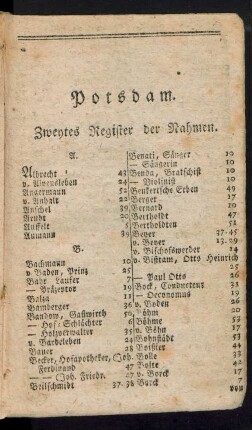 Potsdam.
Zweytes Register der Nahmen.
A.
Albrecht 43
v. Alvensleben 24
Angermann 52
v. Anhalt 22
Anschel 39
Arndt 20
Auffelt
Aumann 39
B.
Bachmann 10
v. Baden, Prinz 25
Bade Laufer
— Präzeptor
Balza
Bamberger
Bandow, Gastwirth
— Hof: Schlächter
— Holzverwalter
v. Bardeleben
Bauer 28
Becker, Hofapotheker, (Joh.
Ferdinand 47
— (Joh. Friedr. 27
Beilschmidt 37-38
Benati, Sänger 10
— Sängerin 10
Benda,
— Violinist 10
Benkertsche Erben 49
Berger 17
Bernard 10
Bertholdt 47
Bertholdten 51
Beyer 37-45
v. Beyer 13.29
v. Bischofswerder 24
v. Bistram, Otto Heinrich
25
— Paul Otto 26
Bock, Conducteur 31
— Oeconomus 19
v. Boden 26
Böhm
Böhme 53
v. Böhn 24
Bohnstädt 28
Boissier
Bolle 44
Bolte 27
v. Borck 17
Borck
von